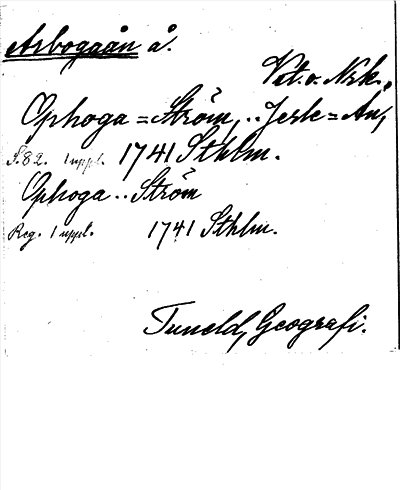 Arbogaån å.
Vet. o. Nrk.
Ophoga = Ström, .. Jerle = Ån,
S. 82. 1 uppl. 1741 Sthlm.
Ophoga .. Ström
Reg. 1 uppl. 1741 Sthlm.
Tuneld, Geografi.